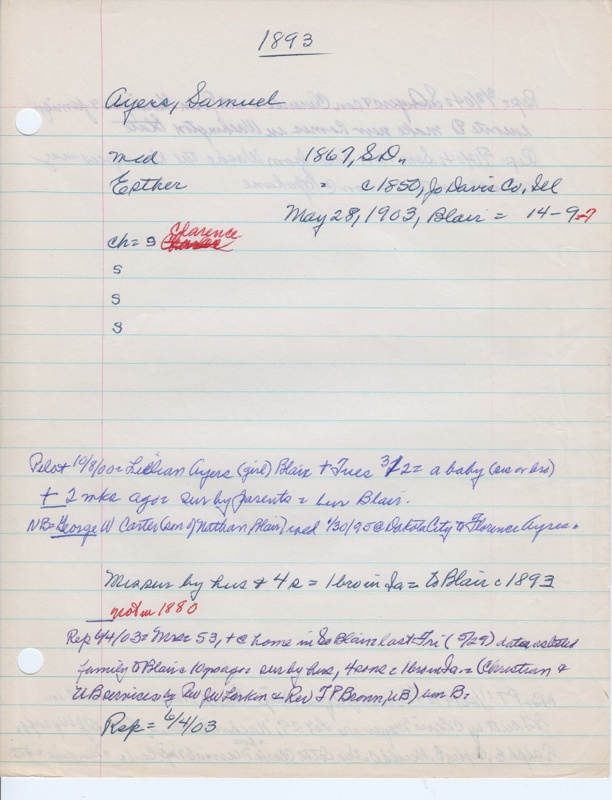 1893
Ayers, Samuel
md 1867, S.D.,
Esther = c1850, Jo Daviess Co, Ill
May 28, 1903, Blair = 14-9-7
ch = s Clarence
s
s
s
Pilot 10/8/00 = Lillian Ayers (girl) Blair + Tues = a baby (sis or bro)
+ 2 wks ago = sur by parents = bur Blair.
NB = George W Carter (son of Nathan, Blair) md 1/30/95 @ Dakota City to Florence Ayres.
Mrs sur by hus + 4 s = 1 bro in Ia = to Blair c 1893
not in 1880
Rep 6/4/03 = Mrs = 53, + @ home in So Blair last Fri (5/29) date
family to Blair 10 yrs ago = sur by hus, 4 sons = 1 bro in Ia. = (Christian &
UB services by Rev JW Larkin & Rev UB) bur B =
Rep = 6/4/03